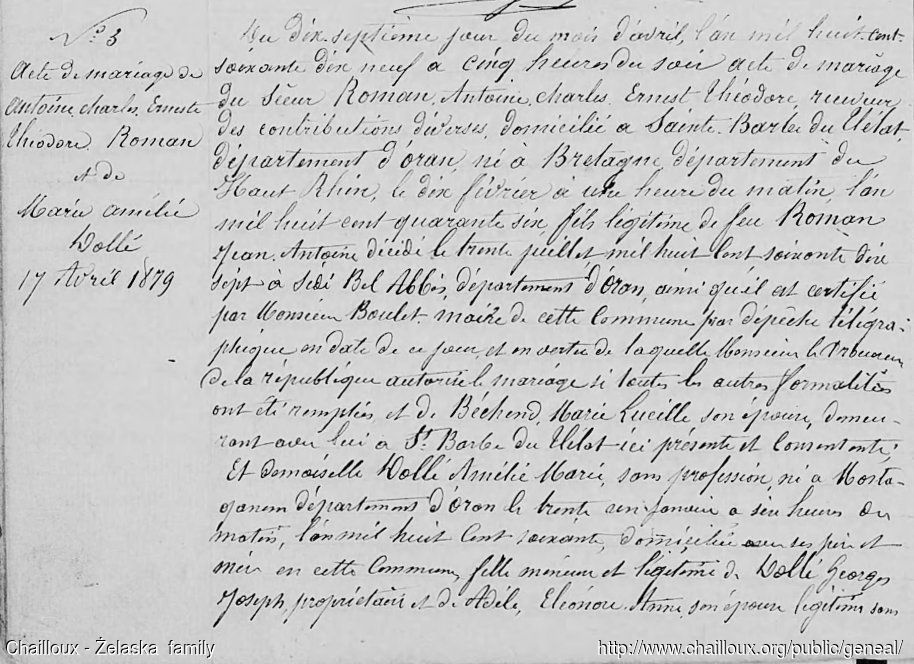 N° 3
Acte de mariage de
Antoine, charles, Erneste
Théodore Roman
et de
Marie amélie
Dollé
17 Avril 1879
Du dix septième jour du mois d'avril, l'an mil huit cent
soixante dix neuf a cinq heures du soir acte de mariage
du sieur Roman, Antoine, charles, Ernest Théodore, receveur
des contributions diverses, domicilié a Sainte Barbe du Tlélat
département d'oran, né à Bretagne département du
Haut Rhin, le dix février à une heure du matin, l'an
mil huit cent quarante six, fils légitime de feu Roman
Jean Antoine décédé le trente juillet mil huit cent soixante dix
sept à Sidi Bel Abbès, département d'Oran, ainsi qu'il est certifié
par Monsieur Boulet maire de cette Commune par dépêche télégra-
phique en date de ce jour, et en vertu de laquelle Monsieur le Procureur
de la république autorise le mariage si toutes les autres formalités
ont été remplies et de Béchend, Marie Lucille son épouse, demeu-
rant avec lui a St Barbe du Tlélat ici présente et Consentante;
Et demoiselle Dollé Amélie Marie, sans profession, né a Mosta-
ganem département d'Oran le trente un janvier a six heures du
matin, l'an mil huit Cent soixante, domiciliée avec ses père et
mère en cette Commune, fille mineure et légitime de Dollé Georges
Joseph, propriétaire et de Adèle, Eléonore Anne, son épouse légitime sans
Chailloux - Želaska family
http://www.chailloux.org/public/geneal/